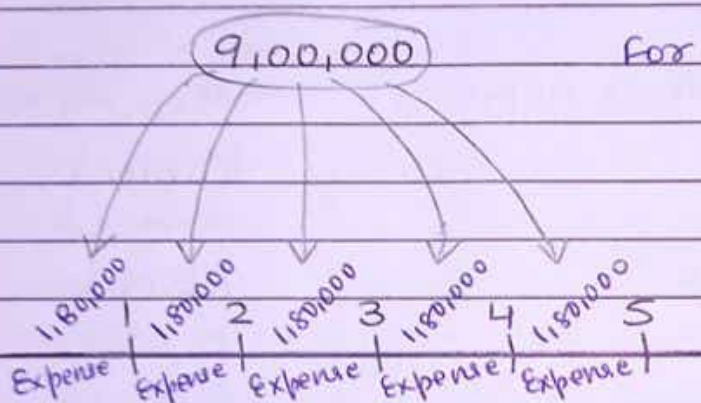 9,00,000 For
1,80,000 1,80,000 1,80,000 1,80,000 1,80,000
1 2 3 4 5
Expense Expense Expense Expense Expense